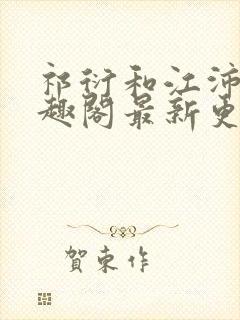 祁衍和江沛
趣阁最新更
賀東作